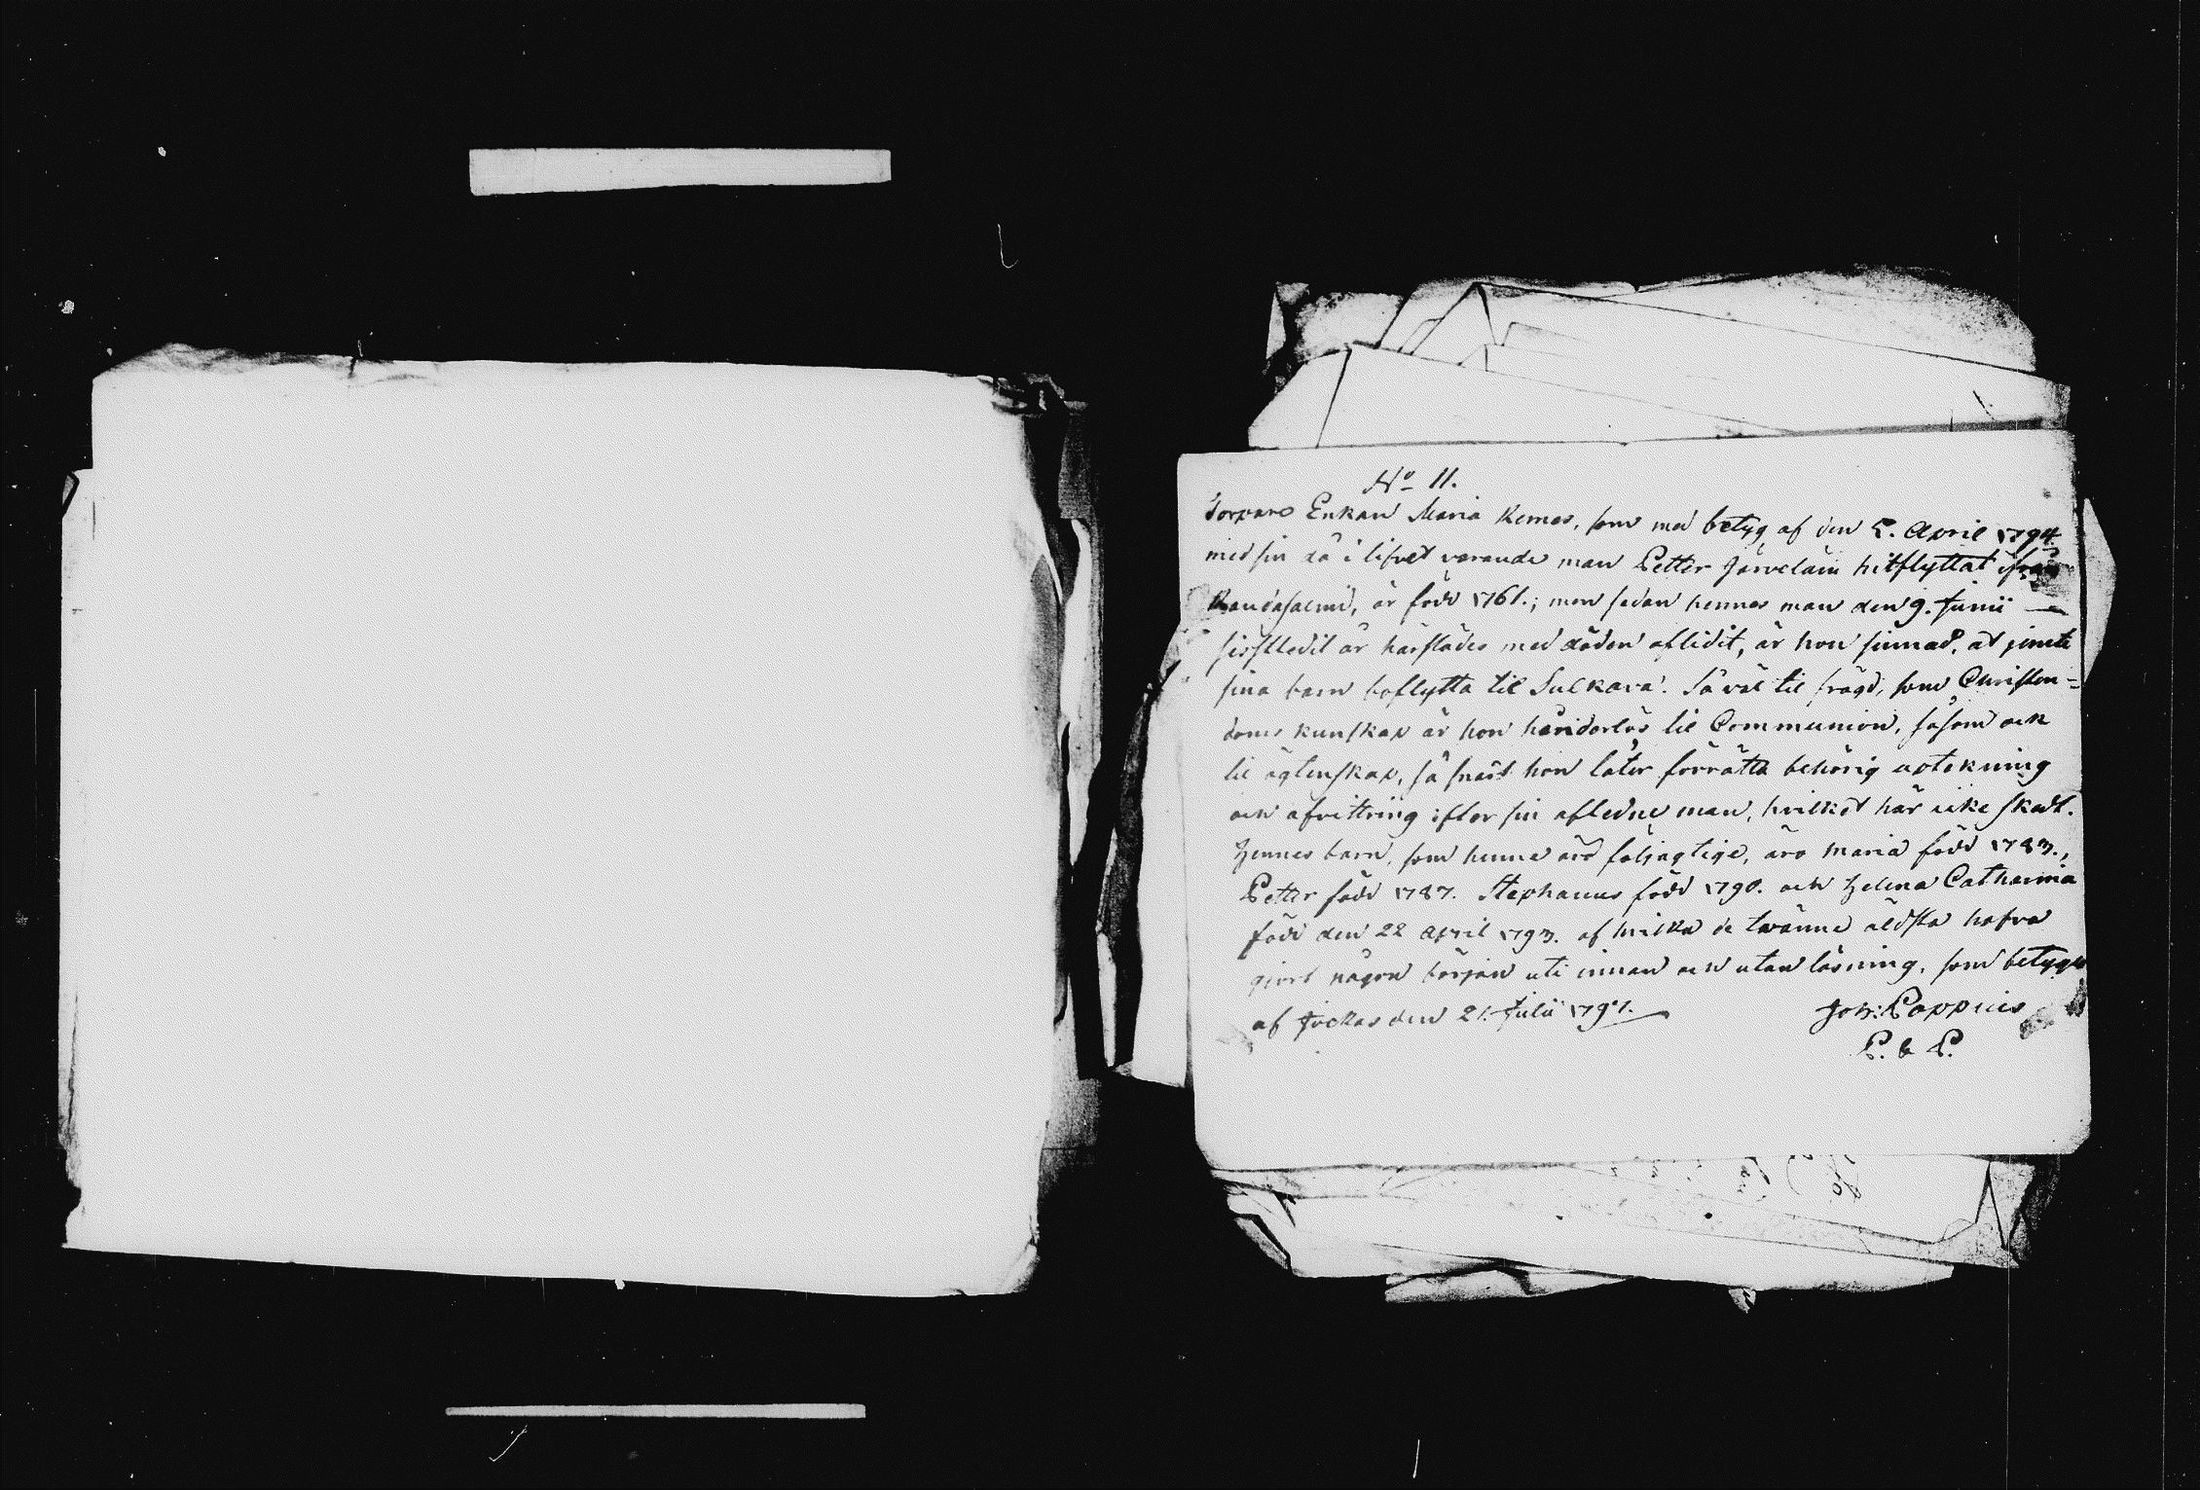 No 11.
Torpare Enkan Maria Kemas, som med betyg af den 5. April 1794.
med sin då i lifvet varande man Petter Järveläin hitflyttat ifrån
Randasalmi, är född 1761.; men sedan hennes man den 9. Junii
sistledit år härstädes med döden aflidit, är hon sinnad, at jemte
sina barn boflytta til Sulkava. Så väl til frägd, som Christen=
doms kunskap är hon hinderlös til Communion, såsom ock
til ägtenskap, så snart hon låter förrätta behörig uptekning
och afvittring efter sin afledne man, hvilket här icke skedt.
Hennes barn, som henne äro följagtige, äro Maria född 1783.,
Petter född 1787. Stephanus född 1790. och Helena Catharina
född den 22 April 1793. af hvilka de tvänne äldsta hafva
giort någon början uti innan och utan läsning, som betygas
af Jockas den 21. Julii 1797.
Joh: Poppius
P. & P.